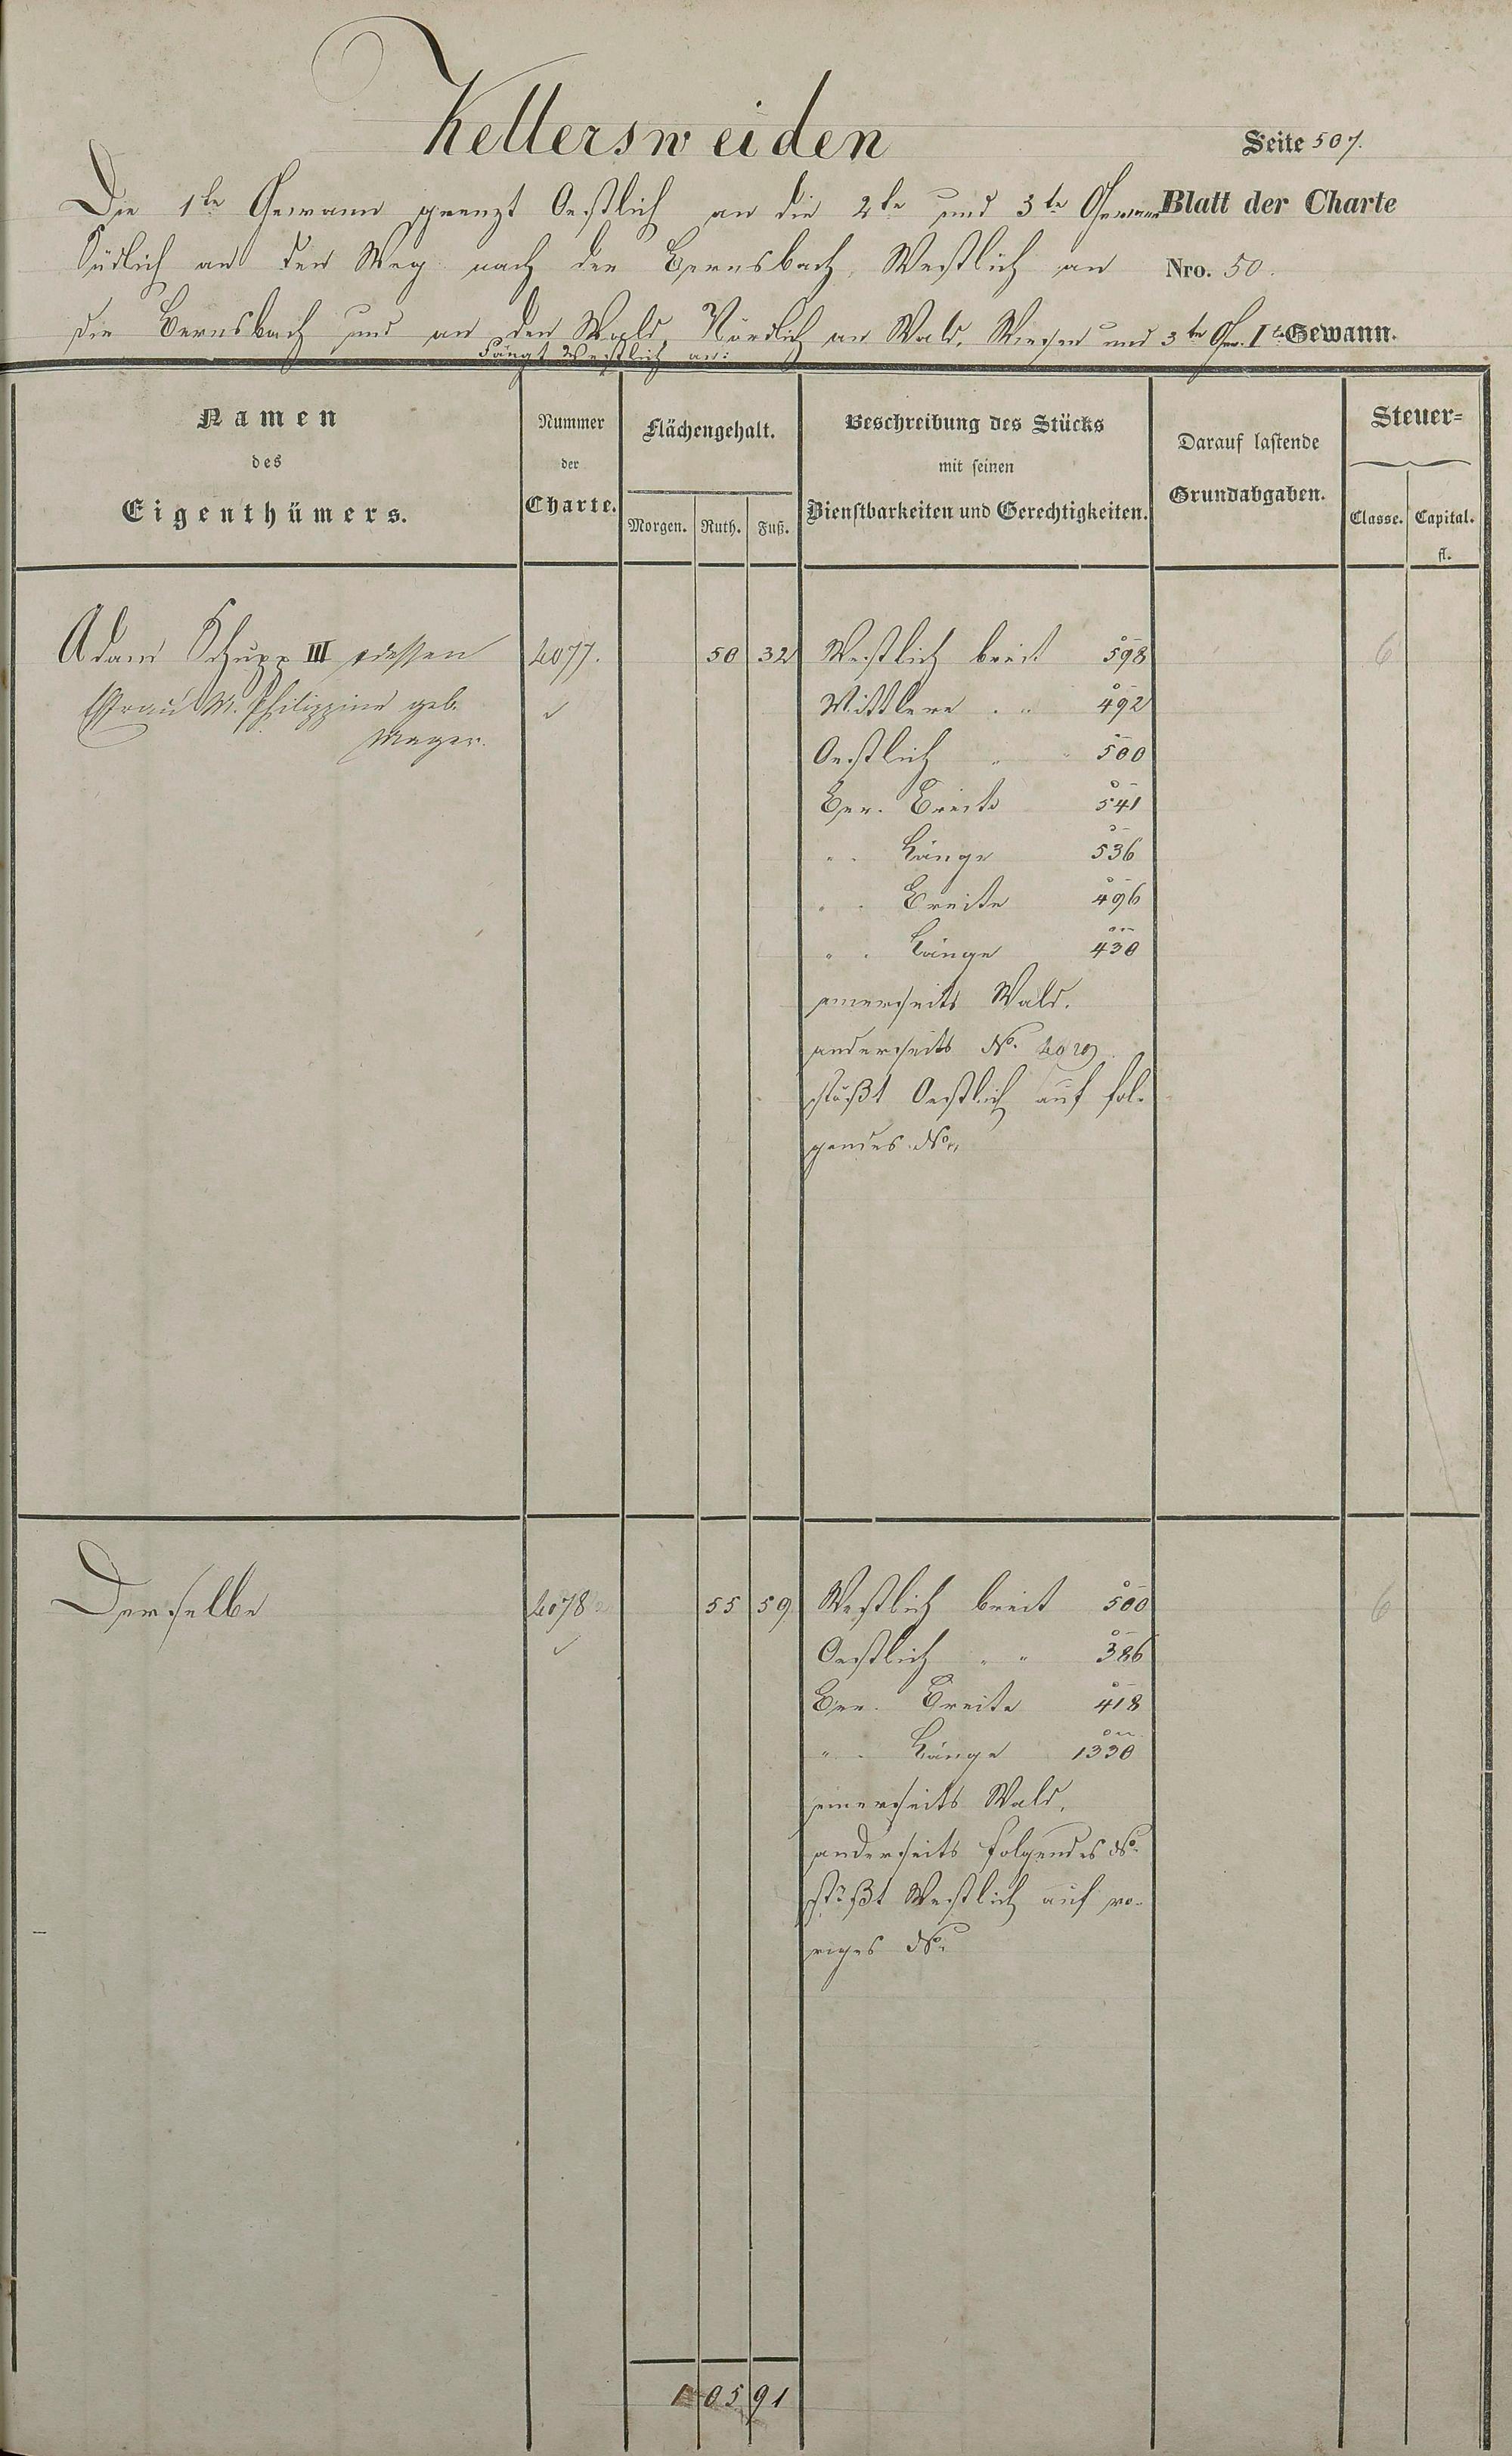 Kellersweiden
Seite 507.
Die 1te Gewann grenzt Oestlich an die 2te und 3te Gewann
Blatt der Charte
Südlich an den Weg nach der Bernsbach, Westlich an
Nro. 50.
die Bernsbach und an den Wald, Nördlich an Wald, Wiesen und 3te Gew. Ite Gewann.
Fängt Westlich an:
Namen
des
Eigenthümers.
Nummer
der
Charte.
Flächengehalt.
Morgen. Ruth. Fuß.
Beschreibung des Stücks
mit seinen
Dienstbarkeiten und Gerechtigkeiten.
Darauf lastende
Grundabgaben.
Steuer=
Classe. Capital.
fl.
Adam Schupp III dessen 4077. 50 32 Westlich breit 598 6
Frau M. Philippine geb. Mittlere " 492
Mayer.
Oestlich " 500
Ger. Breite 541
" Länge 536
" Breite 496
" Länge 430
einerseits Wald.
anderseits No.
stößt Oestlich auf fol-
gendes No.
Derselbe 4078 55 59 Westlich breit 500 6
Oestlich " " 386
Ger. Breite 418
" Länge 1330
einerseits Wald,
anderseits folgendes No.
stößt Westlich auf vo-
riges No.
1 05 91